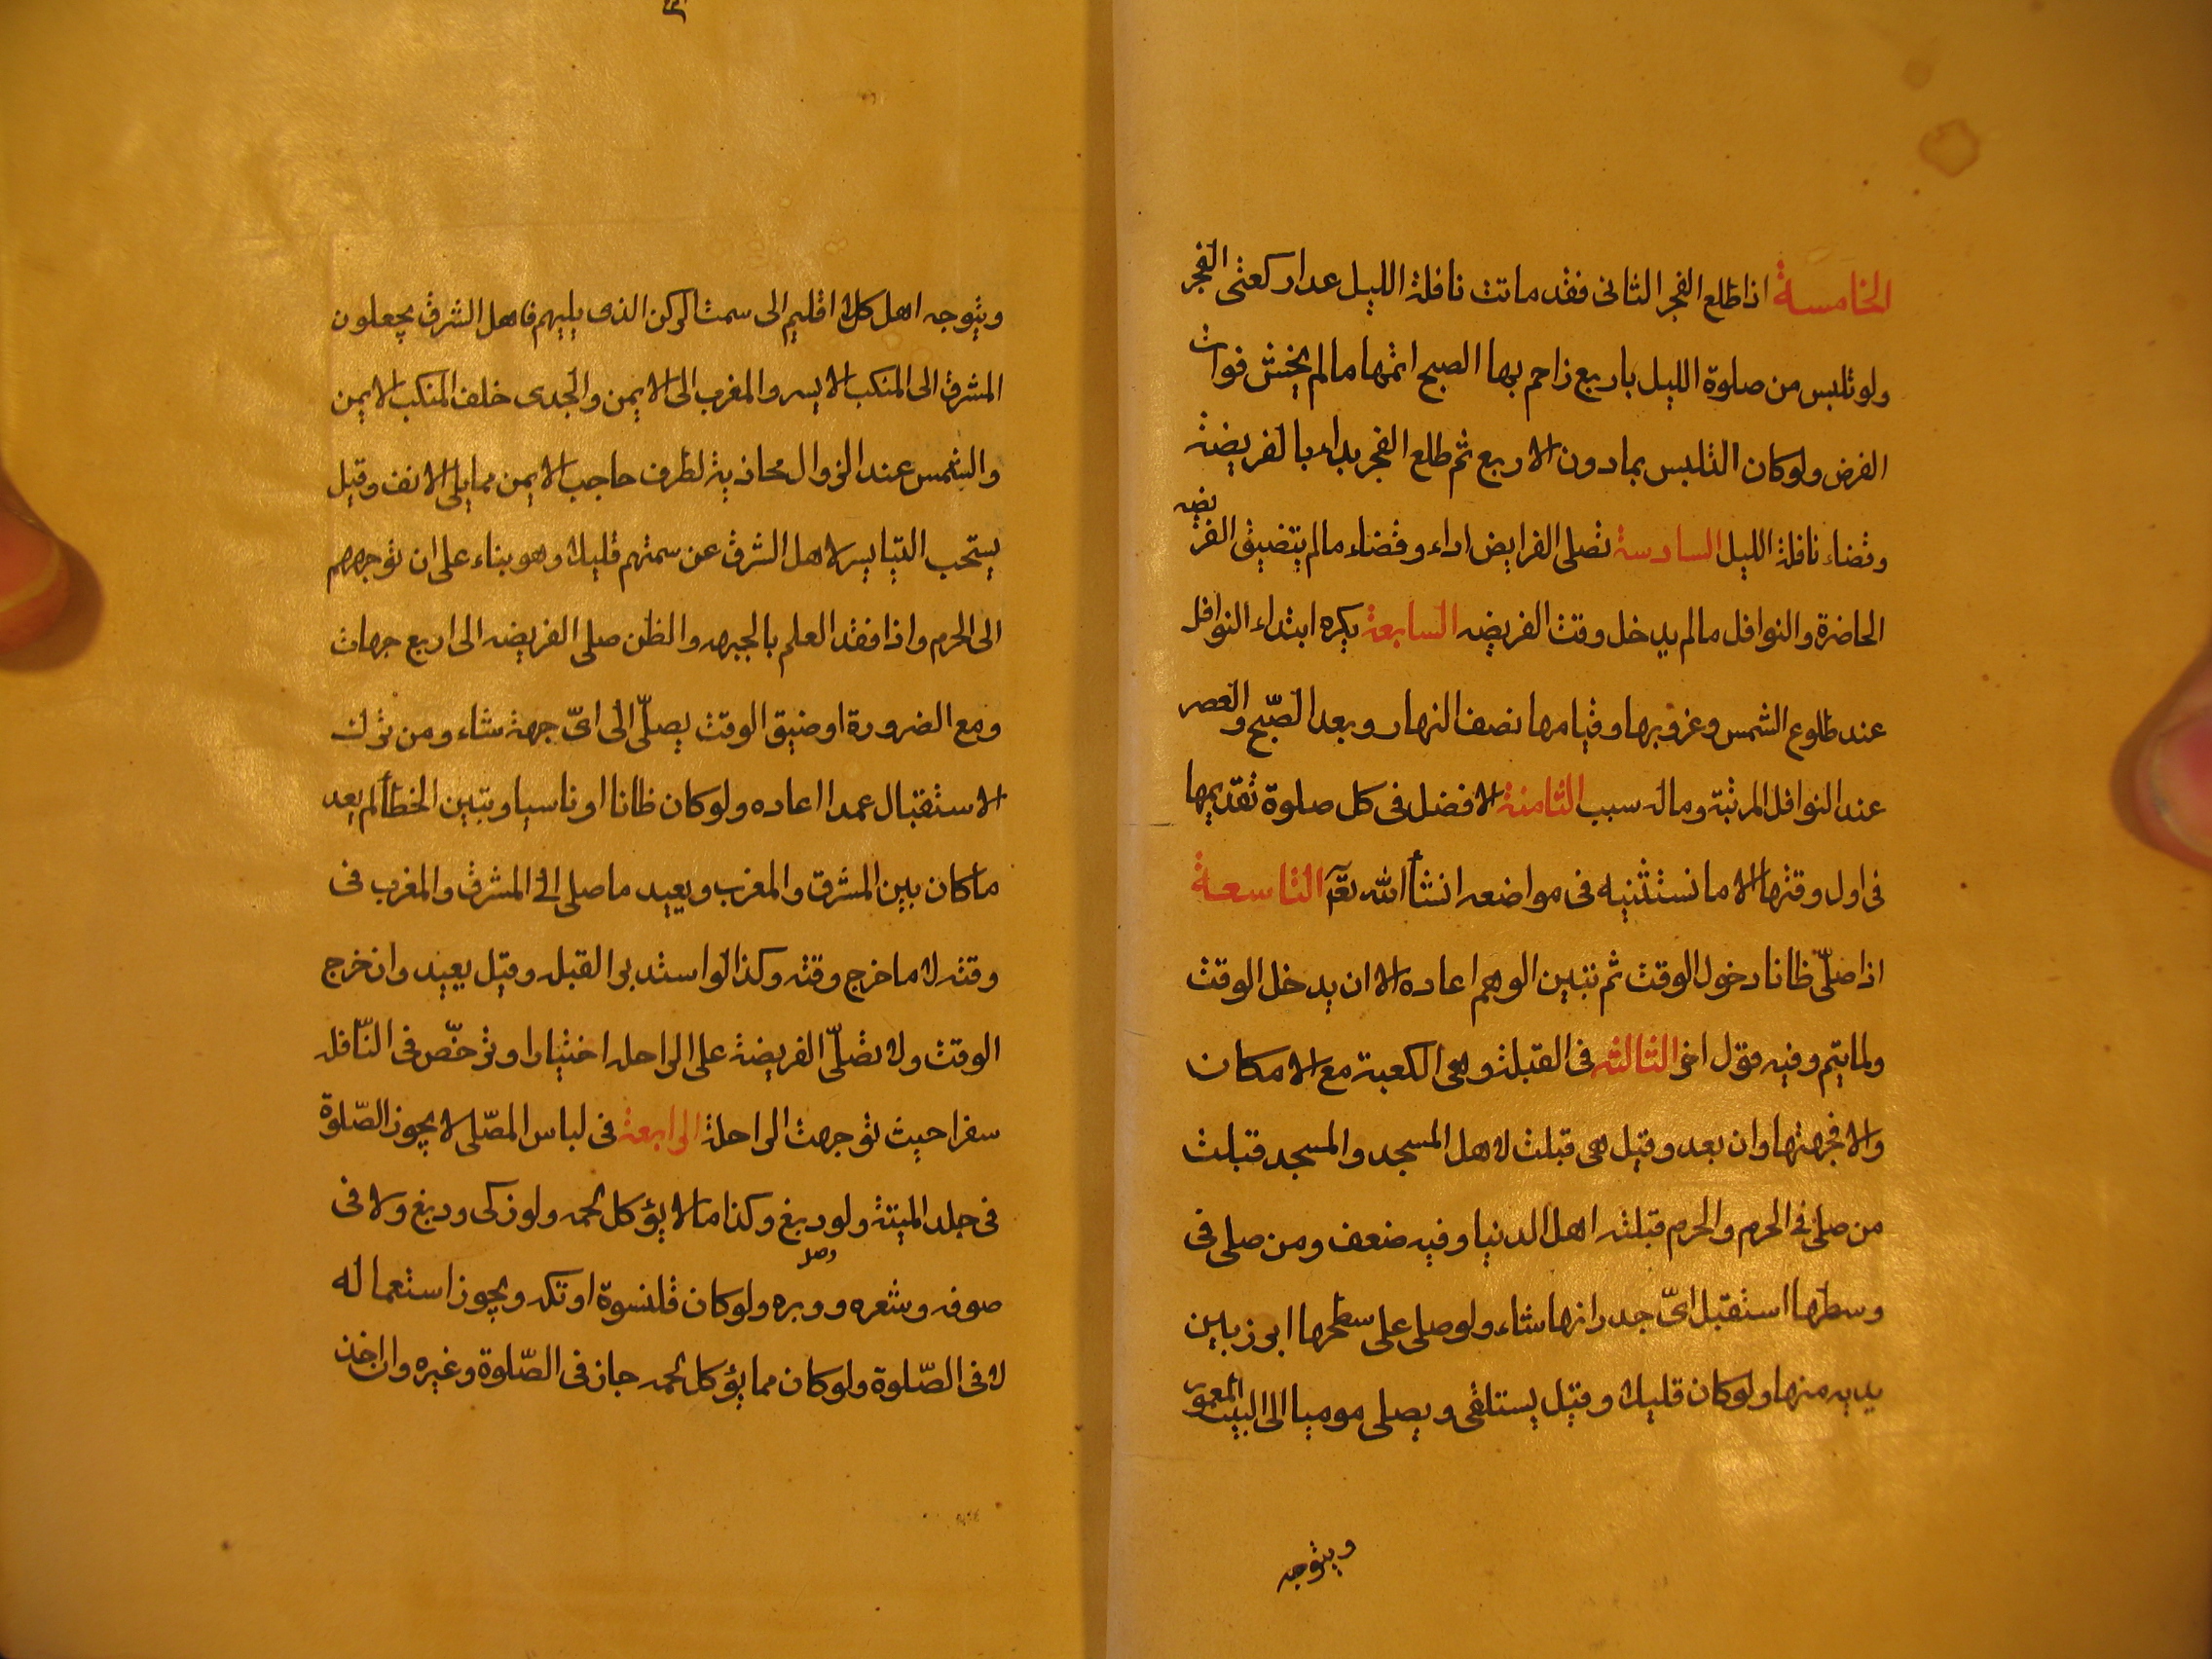 الخامسة اذا طلع الفجر الثانى فقد فاتت نافلة الليل عدا ركعتى الفجر
ولو تلبس من صلوة الليل باربع زاحم بها الصبح اتمها ما لم يخش فوات
الفرض ولو كان التلبس بمادون الاربع ثم طلع الفجر بداء بالفريضة
وقضاء نافلة الليل السادسة تصلى الفرايض اداء وقضاء ما لم يتضيق الفريضه
الحاضرة والنوافل ما لم يدخل وقت الفريضه السابعة يكره ابتداء النوافل
عند طلوع الشمس وغروبها وقيامها نصف النهار وبعد الصّبح والعصر
عند النوافل المرتبة وماله سبب الثامنة الافضل فى كل صلوة تقديمها
فى اول وقتها الا ما نستثنيه فى مواضعه انشأ الله تعۤ التاسعة
اذا صلّى ظانا دخول الوقت ثم تبين الوهم اعاده الا ان يدخل الوقت
ولما يتم وفيه قول اخر الثالثه فى القبلة وهى الكعبة مع الامكان
والا فجهتها وان بعد وقيل هى قبلت لاهل المسجد والمسجد قبلت
من صلى فى الحرم والحرم قبلته اهل الدنيا وفيه ضعف ومن صلى فى
وسطها استقبل اىّ جدرانها شاء ولو صلى على سطحها ابرز بين
يديه منها ولو كان قليلا وقيل يستلقى ويصلى موميا الى البيت المعمور
ويتوجه
ويتوجه اهل كل اقليم الى سمت الركن الذى يليهم فاهل الشرق يجعلون
المشرق الى المنكب الايسر والمغرب الى الايمن والجدى خلف المنكب الايمن
والشمس عند الزوال محاذية لطرف حاجب الايمن مما يلى الانف وقيل
يستحب التياسر لاهل الشرق عن سمتهم قليلا وهو بناء على ان توجههم
الى الحرم واذا فقد العلم بالجهه والظن صلى الفريضه الى اربع جهات
ومع الضرورة او ضيق الوقت يصلّى الى اىّ جهة شاء ومن ترك
الاستقبال عمدا اعاده ولو كان ظانا او ناسيا وتبين الخطأ لم يعد
ما كان بين المشرق والمغرب ويعيد ما صلى الى المشرق والمغرب فى
وقته لا ما خرج وقته وكذا لو استدبر القبله وقيل يعيد وان خرج
الوقت ولا تصّلى الفريضة على الراحله اختيارا وترخّص فى النّافله
سفرا حيث توجهت الراحلة الرابعة فى لباس المصّلى لا يجوز الصّلوة
فى جلد الميتة ولو دبغ وكذا ما لا يؤكل لحمه ولو زكى ودبغ ولا فى
صوفه وشعره ووبره ولو كان قلنسوة او تكه ويجوز استعماله
لا فى الصّلوة ولو كان مما يؤكل لحمه جاز فى الصّلوة وغيره وان اخذ